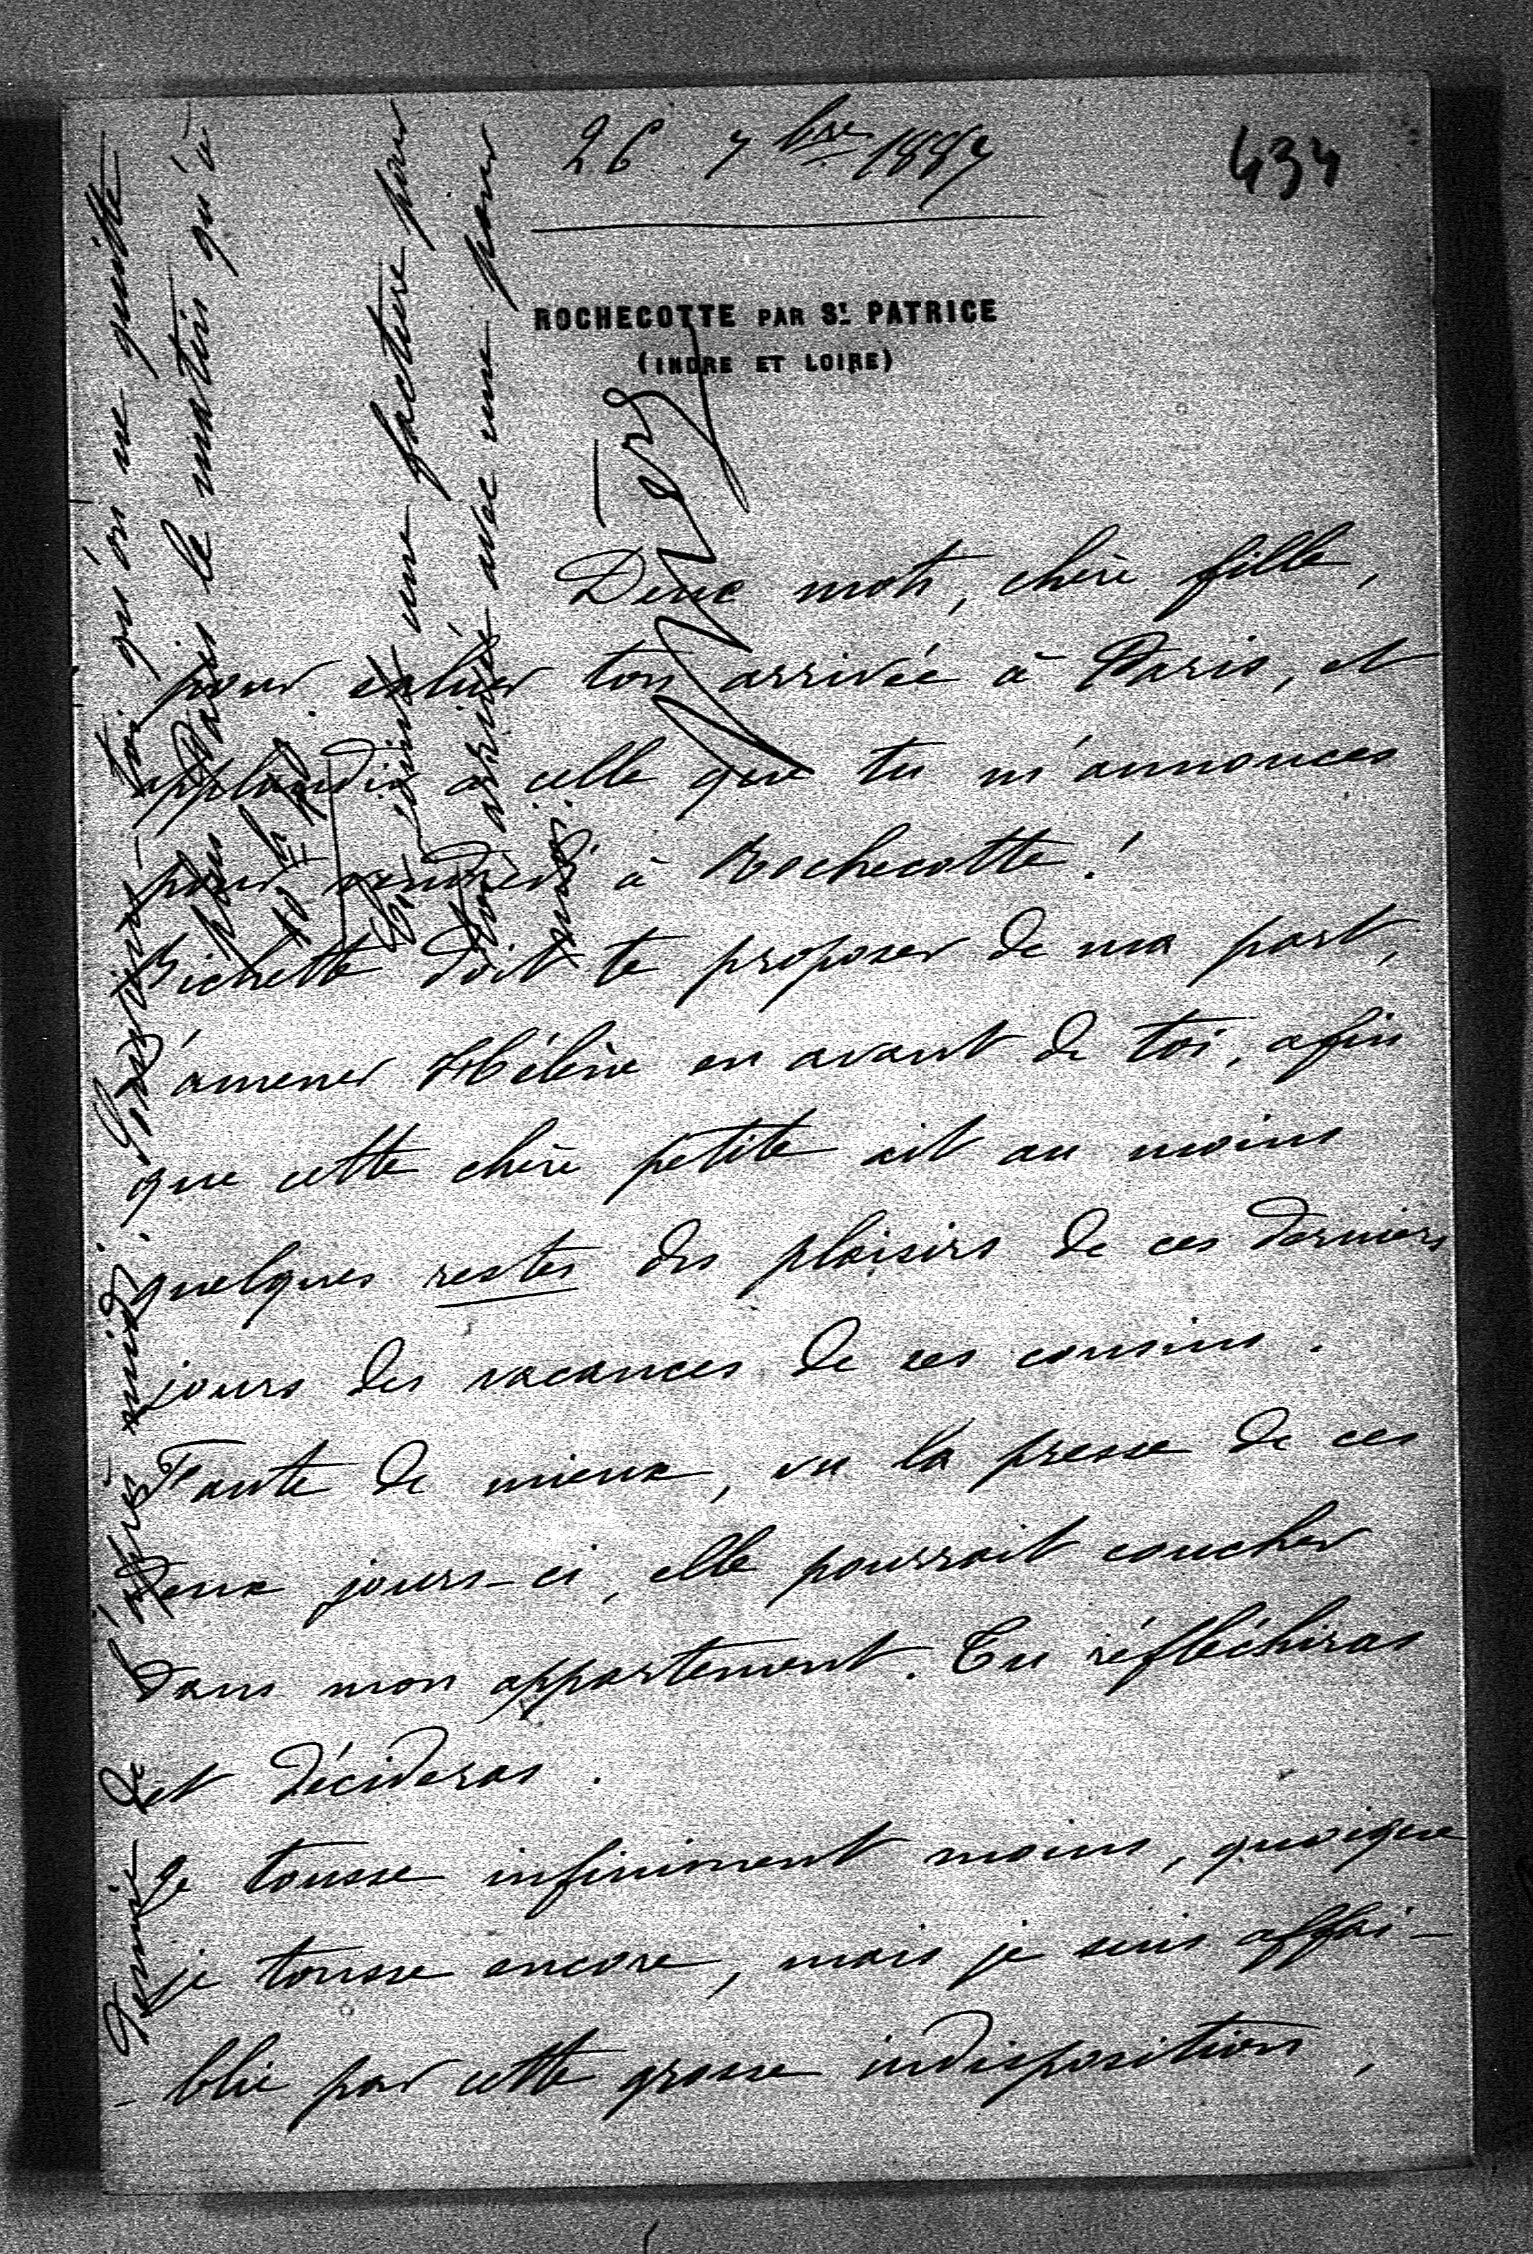 26 7bre 1887
434
ROCHECOTTE PAR St. PATRICE
(INDRE ET LOIRE)
Deux mots, chère fille,
pour saluer ton arrivée à Paris, et
applaudir à celle que tu m'annonces
pour vendredi à Rochecotte!
Bichette doit te proposer de ma part,
d'amener Hélène en avant de toi, afin
que cette chère petite ait au moins
quelques restes des plaisirs de ces derniers
jours des vacances de ses cousins.
Faute de mieux, vu la presse de ces
deux jours-ci, elle pourrait coucher
dans mon appartement. Tu réfléchiras
et décideras.
Je tousse infiniment moins, quoique
je tousse encore, mais je suis affai-
-blie par cette grosse indisposition,
de l'après midi. toi qu'on ne quitte
Paris le matin qu'à
10 h
Ci-joint une facture pour
arrivée avec une pour
moi.